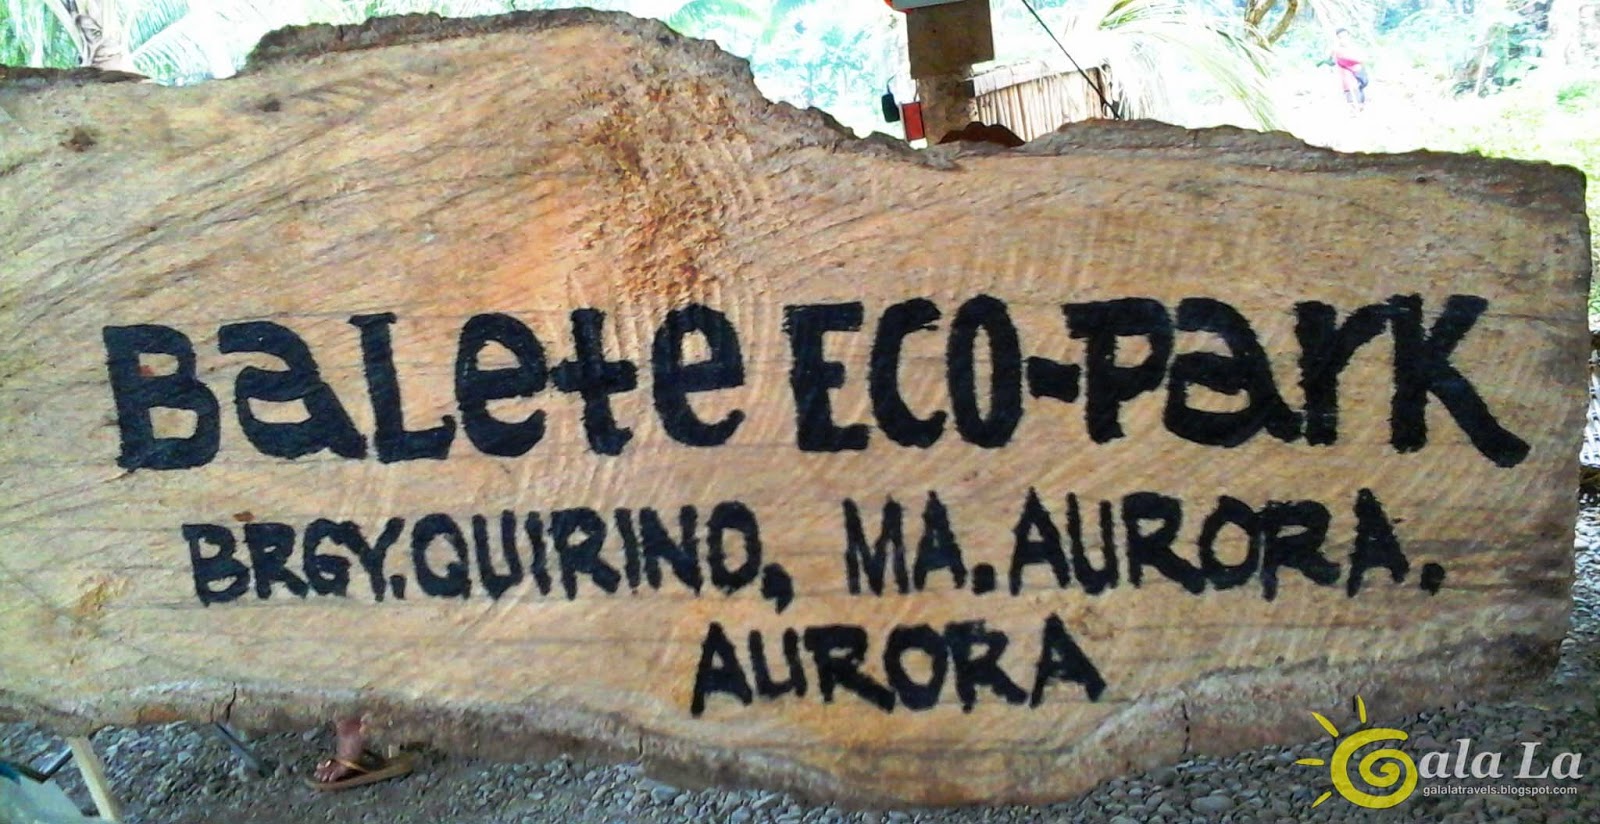 BaLete ECO-Park
BRGY.QUIRINO, MA.AURORA.
AURORA
Gala La
galalatravels.blogspot.com